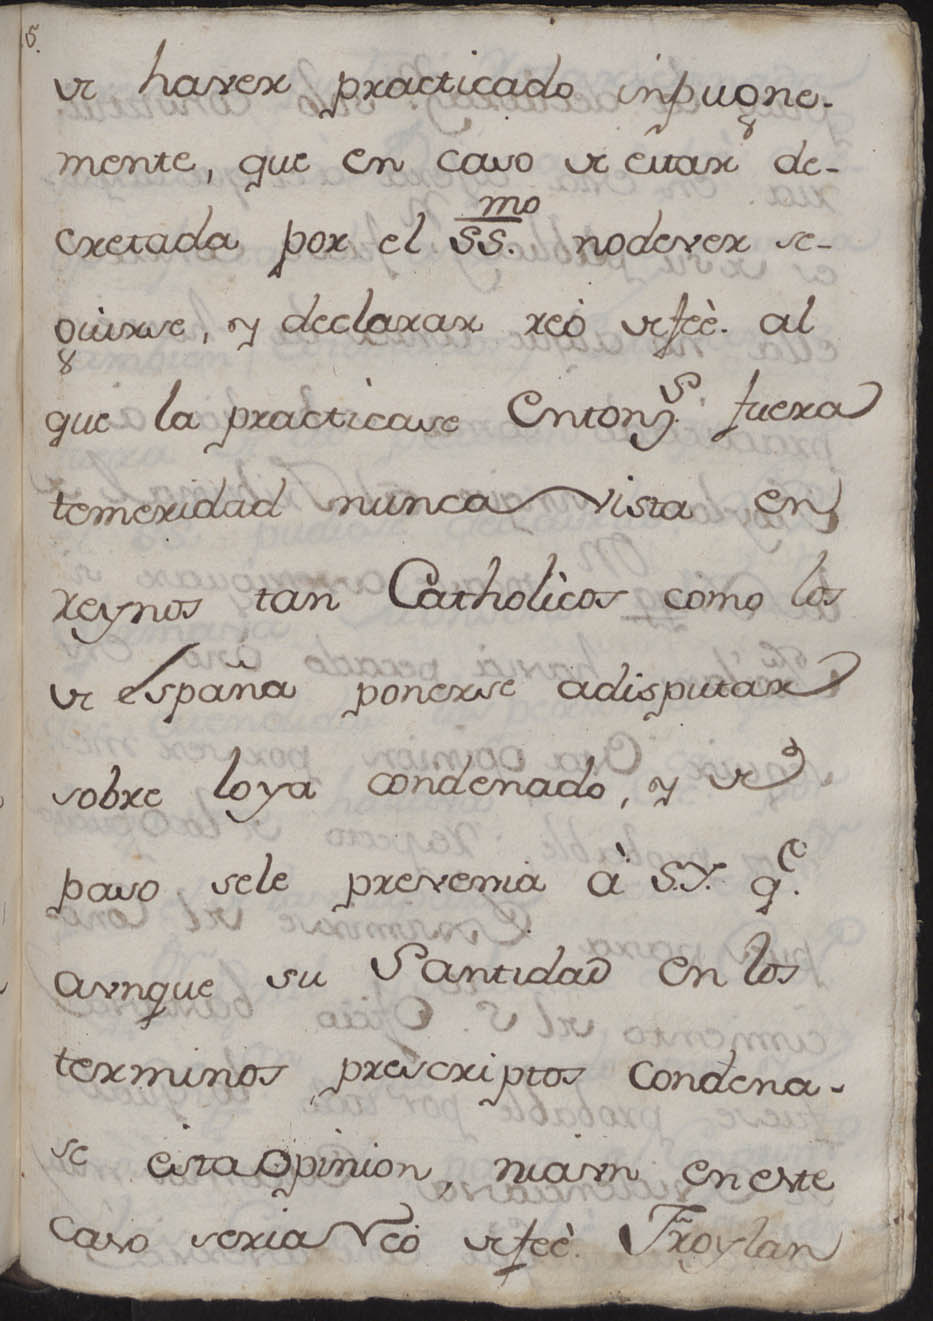 5.
de haver practicado inpugne-
mente, que en caso de estar de-
cretada por el SS.mo no dever se-
guirse, y declarar reò de feè. al
que la practicase Entonz.s fuera
temeridad nunca vista en
reynos tan Catholicos como los
de España ponerse adisputar
sobre loya condenado, y de
paso sele prevenia à S.Y. q.e
avnque su Santidad en los
terminos prescriptos condena-
se esta Opinion, niasn eneste
Caso seria Reò de feè. Froylan